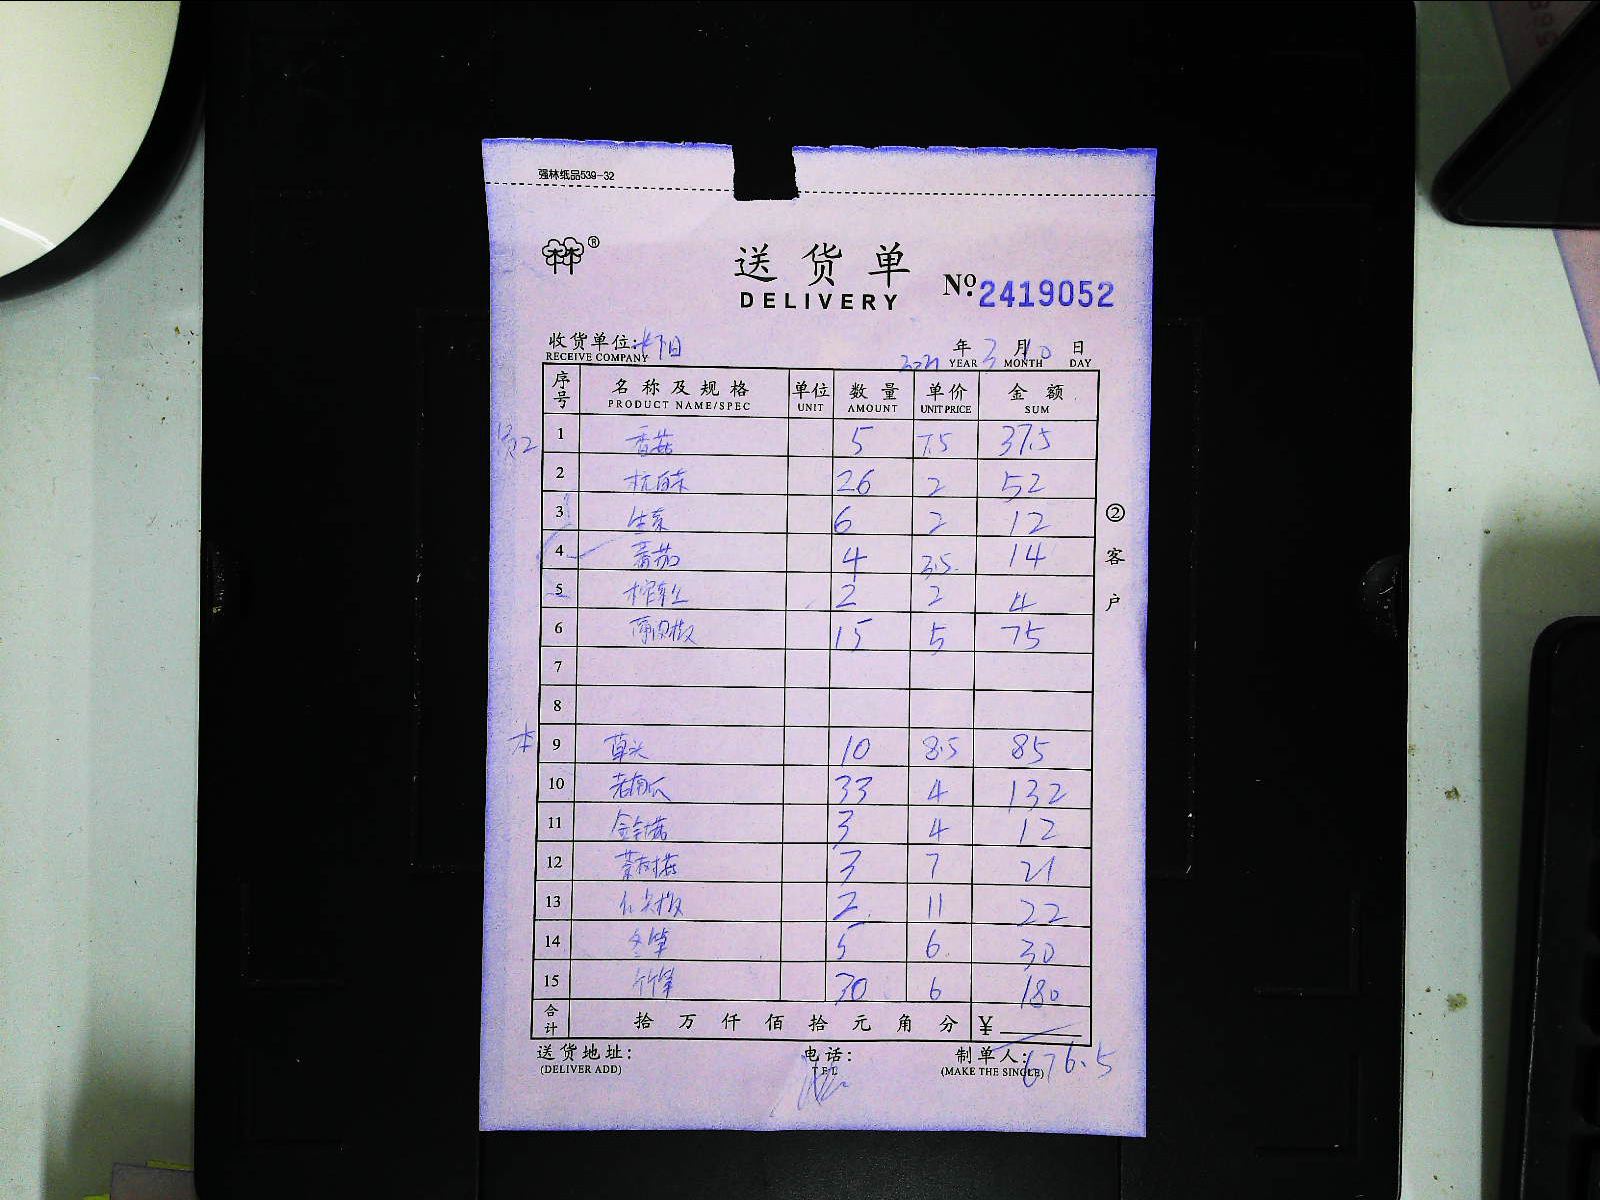 强林纸品539-32
林®
送货单
DELIVERY
No. 2419052
收货单位:
RECEIVE COMPANY
2021 年 3 月 10 日
YEAR MONTH DAY
序号 名称及规格 单位 数量 单价 金额
PRODUCT NAME/SPEC UNIT AMOUNT UNIT PRICE SUM
1 香菇 5 7.5 37.5
2 杭白菜 26 2 52
3 生菜 6 2 12
4 番茄 4 3.5 14
5 榨菜丝 2 2 4
6 薄肉椒 15 5 75
7
8
本 9 草头 10 8.5 85
10 老南瓜 33 4 132
11 金针菇 3 4 12
12 茶树菇 3 7 21
13 尖椒 2 11 22
14 冬笋 5 6 30
15 竹笋 30 6 180
合计 拾万仟佰拾元角分 ¥
676.5
送货地址: 电话: 制单人:
(DELIVER ADD) TEL (MAKE THE SINGLE)
②客户